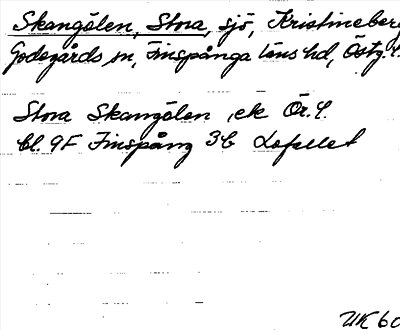 Skangölen, Stora, sjö, Kristineberg
Godegårds sn, Finspånga läns hd, Östg. l.
Stora Skangölen, ek Ör. 4.
bl. 9F Finspång 3b Lofallet
UK 60